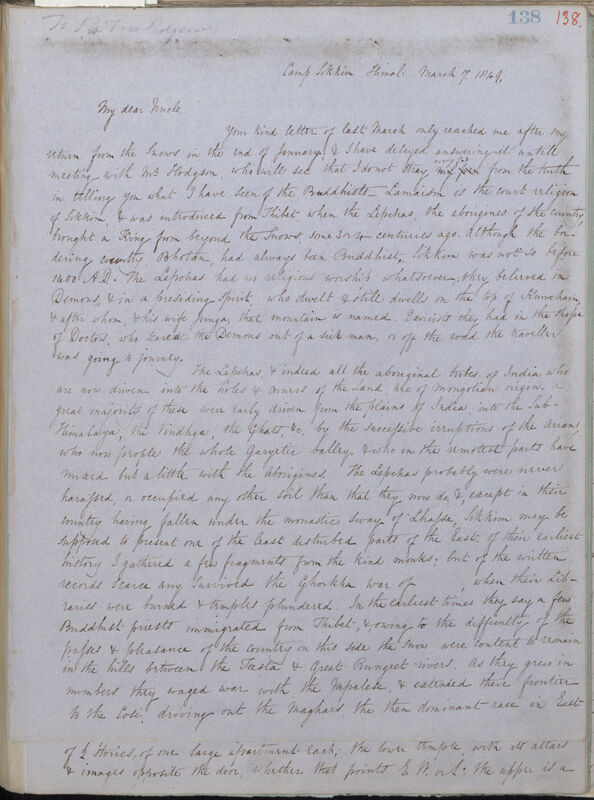 138 138.
To
Camp Sikkim Himal. March 7. 1849.
My dear Uncle,
Your kind letter of last March only reached me after my
return from the Snows in the end of January. & I have delayed answering it untill
meeting with Mr Hodgson, who will see that I do not stray from the truth
in telling you what I have seen of the Buddhists — Lamaism is the court religion
of Sikkim, & was introduced from Thibet when the Lepchas, the aborigines of the country,
brought a King from beyond the Snows some 3 or 4 centuries ago. Although the bor-
dering country, Bhotan, had always been Buddhist, Sikkim was not so before
1400 A.D. The Lepchas had no religious worship whatsoever; they believed in
Demons, & in a presiding Spirit who dwelt & still dwells on the top of
& after whom, & his wife Junga, that mountain is named. Exorcists they had in the shape
of Doctors, who scared the Demons out of a sick man, or off the road the traveller
was going to journey.
The Lepchas, & indeed all the aboriginal tribes of India who
are now driven into the holes & corners of the land are of mongolian origin. A
great majority of these were early driven from the plains of India, into the Sub-
Himalaya, the Vindhya, the Ghats &c. by the successive irruptions of the Arian,
who now people the whole Gangetic valley, & who in the remotest parts have
mixed but a little with the Aborigines. The Lepchas probably were never
harassed, or occupied any other soil than that they now do, &, except in their
country having fallen under the monastic sway of Lhassa, Sikkim may be
supposed to present one of the least disturbed parts of the East; of their earliest
history I gathered a few fragments from the kind monks; but of the written
records scarce any survived the Ghorkha war of , when their Lib-
raries were burned & temples plundered. In the earliest times they say, a few
Buddhist priests immigrated from Thibet, & owing to the difficulty of the
passes & pleasance of the country on this side the Snow were content to remain
in the hills between the Teesta & Great Rungeet rivers. As they grew in
numbers they waged war with the Nepalese, & extended their frontier
to the Cosi, driving out the Maghars the then dominant race in East
of 2 Stories, of one large apartment each; the lower temple, with its altars
& images opposite the door, whether that points E. W. or S: the upper is a